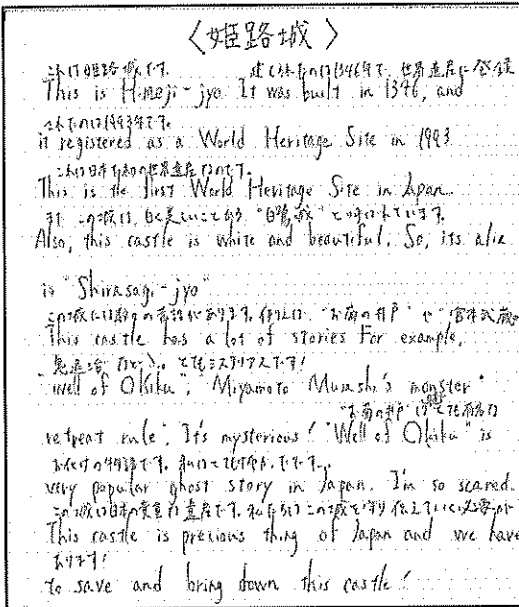 〈姫路城〉
これは姫路城です。 建てられたのは1346年で、世界遺産に登録
This is Himeji-jyo It was built in 1346, and
されたのは1993年です。
it registered as a World Heritage Site in 1993
これは日本で初の世界遺産なのです。
This is the first World Heritage Site in Japan.
また、この城は、白く美しいことから "白鷺城" と呼ばれています。
Also, this castle is white and beautiful. So, its alie
is "Shirasagi-jyo"
この城には数々の昔話があります。例えば、"お菊の井戸" や "宮本武蔵の
This castle has a lot of stories For example,
など とてもミステリアスです!
"Well of Okiku", "Miyamoto Musashi's monster
"お菊の井戸" はとても有名な
retreat rule". It's mysterious! "Well of Okiku" is
お化けの物語です。私は
very popular ghost story in Japan. I'm so scared.
この城は日本の貴重な遺産です。私たちはこの城を守り伝えていく必要が
This castle is precious thing of Japan and we have
あります!
to save and bring down this castle!